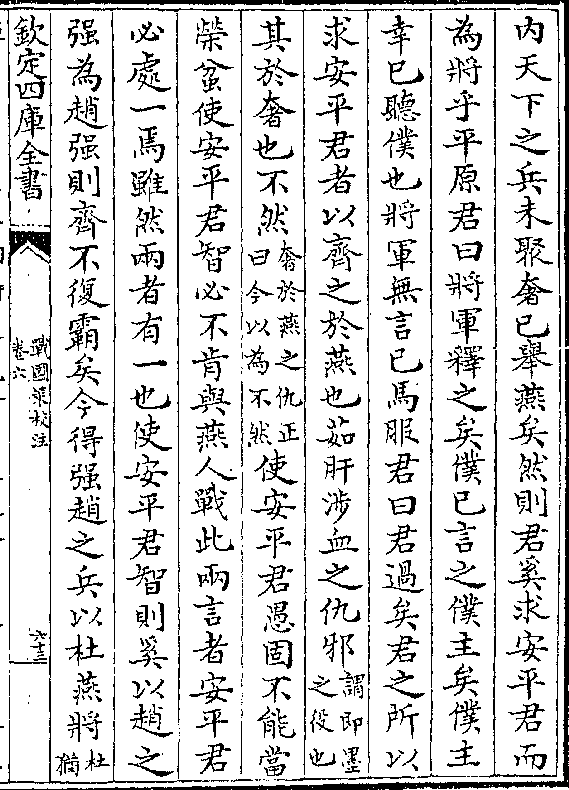 内天下之兵未聚奢已舉燕矣然則君奚求安平君而
為將乎平原君曰將軍釋之矣僕已言之僕主矣僕主
幸已聽僕也將軍無言已馬服君曰君過矣君之所以
求安平君者以齊之於燕也茹肝涉血之仇邪謂即墨之役也
其於奢也不然奢於燕之仇正曰今以為不然使安平君愚固不能當
榮蚠使安平君智必不肯與燕人戰此兩言者安平君
必處一焉雖然兩者有一也使安平君智則奚以趙之
强為趙强則齊不復霸矣今得强趙之兵以杜燕將杜猶
欽定四庫全書
戰國策校注
卷六
六十三